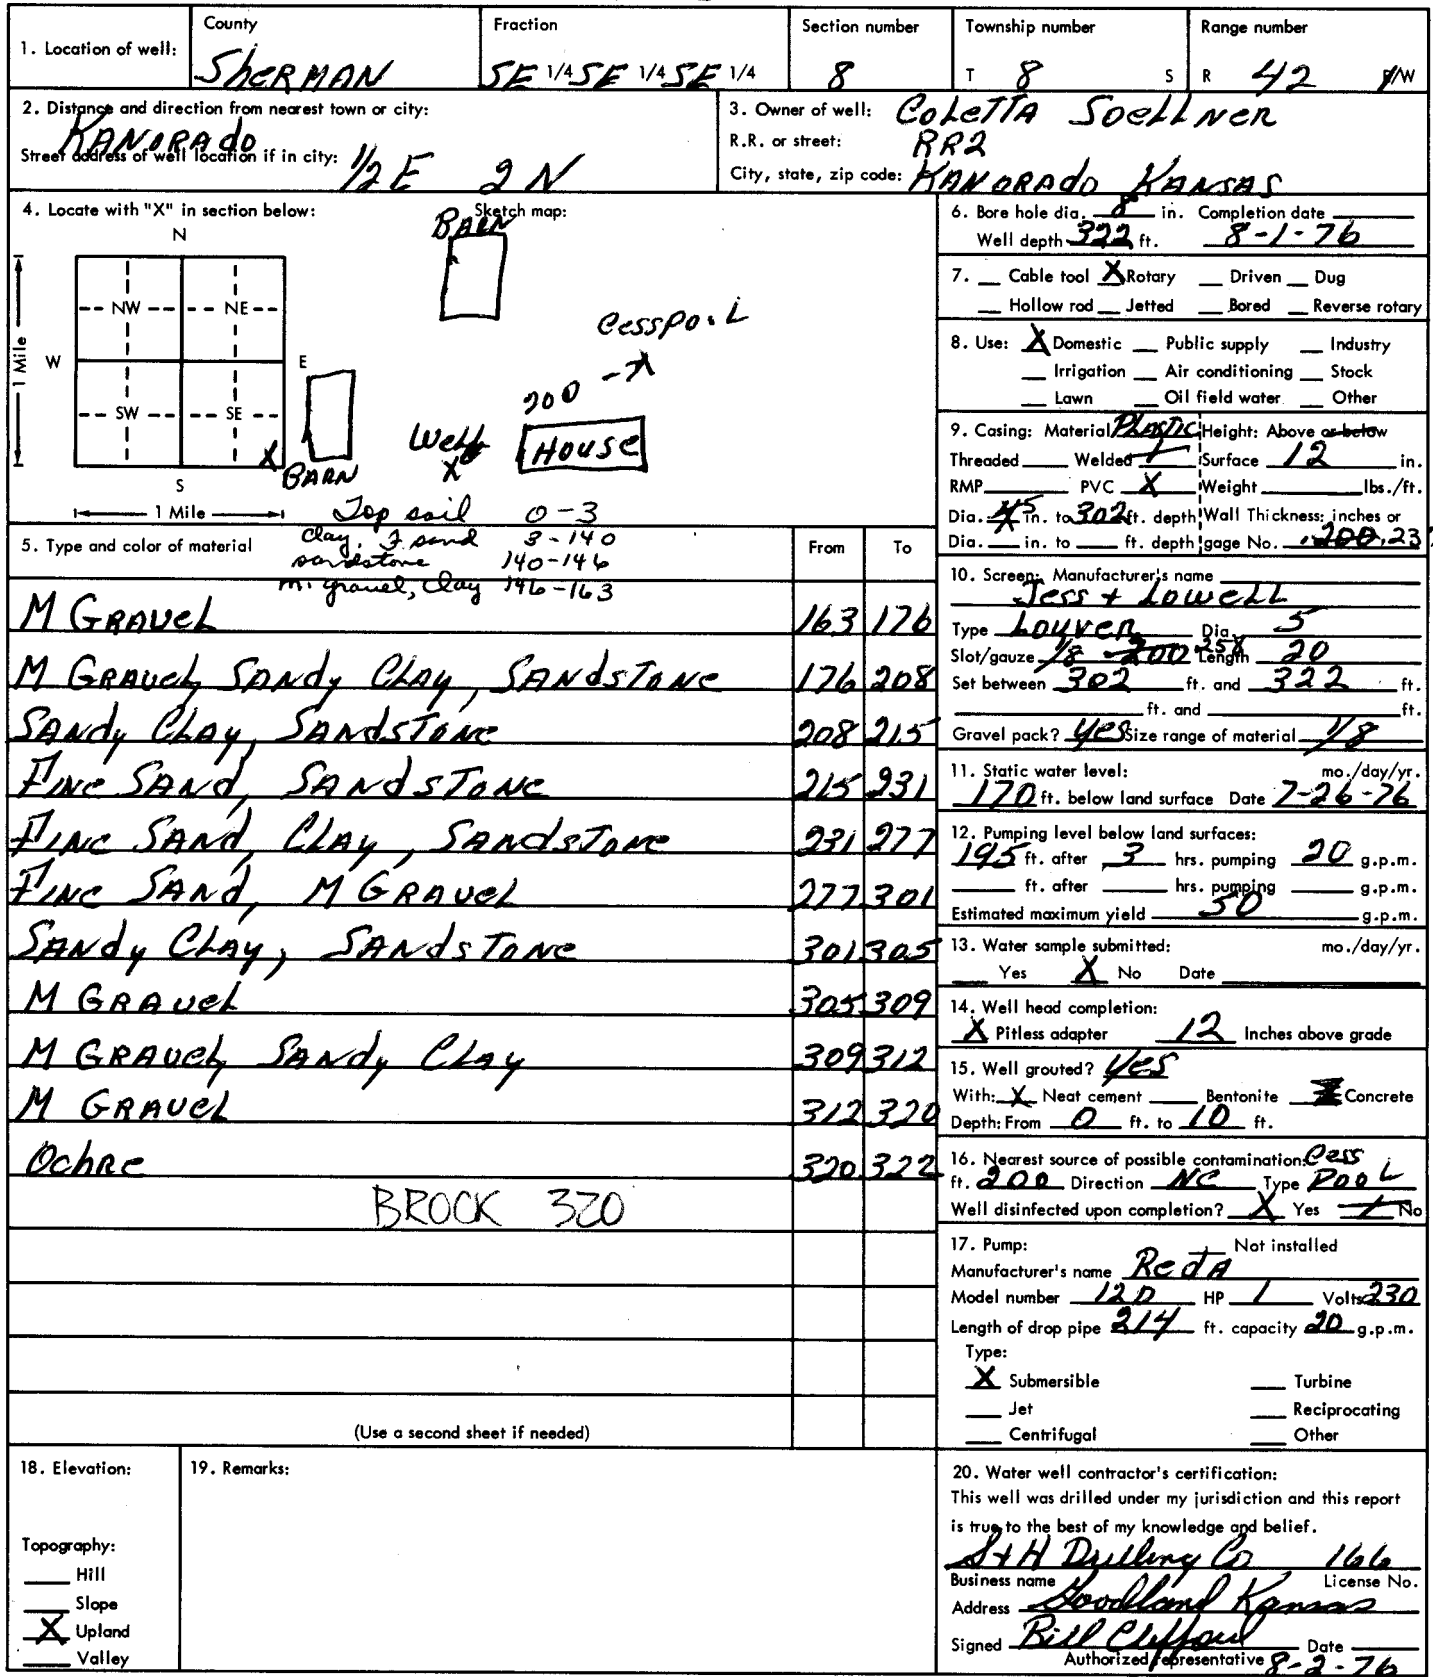 County Fraction Section number Township number Range number
1. Location of well: Sherman SE 1/4 SE 1/4 SE 1/4 8 T 8 S R 42 E/W
2. Distance and direction from nearest town or city:
Kanorado
Street address of well location if in city: 1/2 E 2 N
3. Owner of well: Coletta Soellner
R.R. or street: RR2
City, state, zip code: Kanorado Kansas
4. Locate with "X" in section below: Sketch map:
N
NW NE
W E
SW SE
X
S
1 Mile
1 Mile
Barn
Cesspool
200
Well
X
House
Barn
Top soil 0-3
Clay, F sand 3-140
sandstone 140-146
m. gravel, clay 146-163
5. Type and color of material From To
M Gravel 163 176
M Gravel, Sandy Clay, Sandstone 176 208
Sandy Clay, Sandstone 208 215
Fine Sand, Sandstone 215 231
Fine Sand, Clay, Sandstone 231 277
Fine Sand, M Gravel 277 301
Sandy Clay, Sandstone 301 305
M Gravel 305 309
M Gravel, Sandy Clay 309 312
M Gravel 312 320
Ochre 320 322
BROCK 320
(Use a second sheet if needed)
6. Bore hole dia. 8 in. Completion date
Well depth 322 ft. 8-1-76
7. Cable tool X Rotary Driven Dug
Hollow rod Jetted Bored Reverse rotary
8. Use: X Domestic Public supply Industry
Irrigation Air conditioning Stock
Lawn Oil field water Other
9. Casing: Material Plastic Height: Above or below
Threaded Welded Surface 12 in.
RMP PVC X Weight lbs./ft.
Dia. 5 in. to 302 ft. depth Wall Thickness: inches or
Dia. in. to ft. depth gage No. .200 .23
10. Screen: Manufacturer's name
Jess + Lowell
Type Louver Dia. 5
Slot/gauze 1/8 200 .258 Length 20
Set between 302 ft. and 322 ft.
ft. and ft.
Gravel pack? Yes Size range of material 1/8
11. Static water level: mo./day/yr.
170 ft. below land surface Date 7-26-76
12. Pumping level below land surfaces:
195 ft. after 3 hrs. pumping 20 g.p.m.
ft. after hrs. pumping g.p.m.
Estimated maximum yield 50 g.p.m.
13. Water sample submitted: mo./day/yr.
Yes X No Date
14. Well head completion:
X Pitless adapter 12 Inches above grade
15. Well grouted? Yes
With: X Neat cement Bentonite Concrete
Depth: From 0 ft. to 10 ft.
16. Nearest source of possible contamination: Cess
ft. 200 Direction NE Type Pool
Well disinfected upon completion? X Yes No
17. Pump: Not installed
Manufacturer's name Reda
Model number 12D HP 1 Volts 230
Length of drop pipe 214 ft. capacity 20 g.p.m.
Type:
X Submersible Turbine
Jet Reciprocating
Centrifugal Other
18. Elevation:
Topography:
Hill
Slope
X Upland
Valley
19. Remarks:
20. Water well contractor's certification:
This well was drilled under my jurisdiction and this report
is true to the best of my knowledge and belief.
S+H Drilling Co 166
Business name License No.
Address Goodland Kansas
Signed Bill Clifford Date
Authorized representative 8-2-76